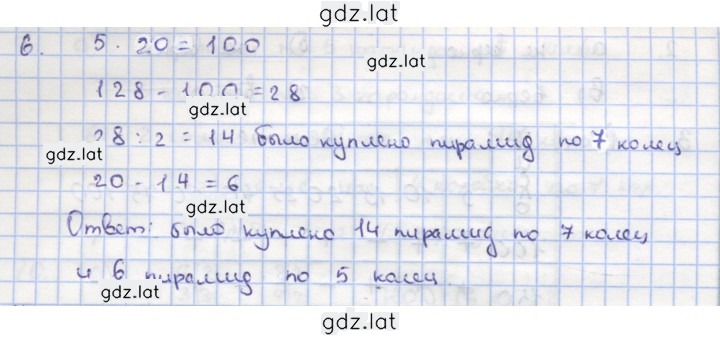 gdz.lat
6. 5 · 20 = 100
gdz.lat
128 - 100 = 28
gdz.lat
28 : 2 = 14 было куплено пирамид по 7 колец
gdz.lat
20 - 14 = 6
gdz.lat
Ответ: было куплено 14 пирамид по 7 колец
и 6 пирамид по 5 колец.
gdz.lat
gdz.lat